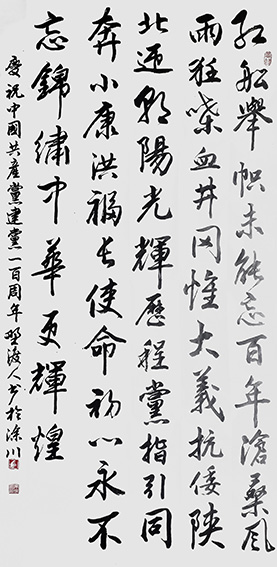 红船舉幟未能忘百年滄桑風
雨狂喋血井冈惟大義抗倭陕
北迎朝陽光輝歷程黨指引同
奔小康洪福长使命初心永不
忘錦繡中華更輝煌
慶祝中國共產黨建黨一百周年野渡人书於川